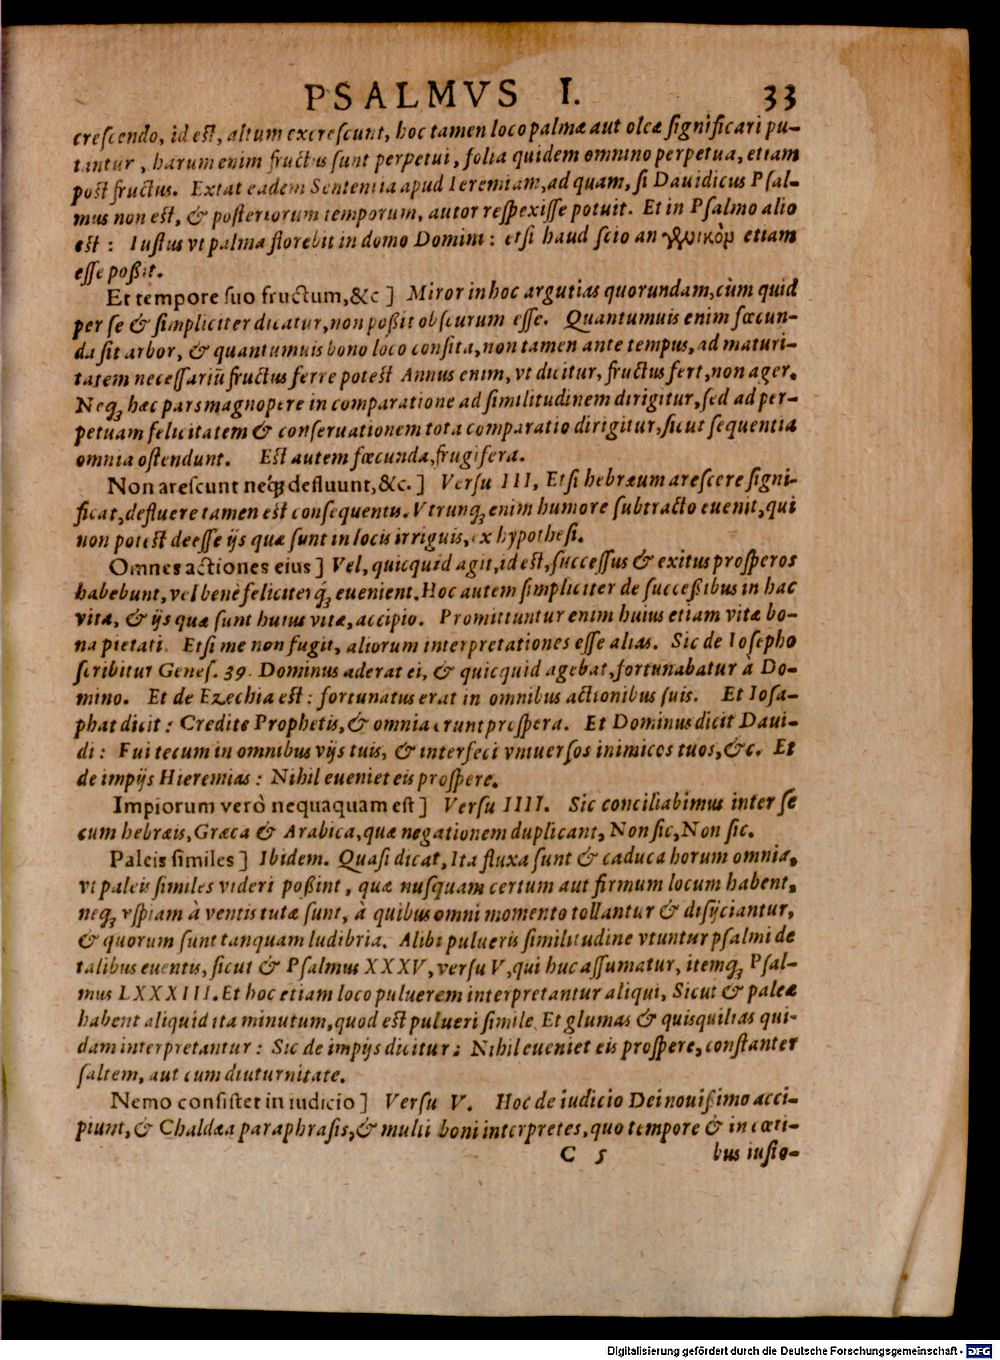 PSALMVS I. 33
creſcendo, id eſt, altum excreſcunt, hoc tamen loco palmæ aut oleæ ſignificari pu-
tantur, harum enim fructus ſunt perpetui, folia quidem omnino perpetua, etiam
poſt fructus. Extat eadem Sententia apud Ieremiam, ad quam, ſi Dauidicus Pſal-
mus non eſt, & poſteriorum temporum, autor reſpexiſſe potuit. Et in Pſalmo alio
eſt: Iuſtus vt palma florebit in domo Domini: etſi haud ſcio an etiam
eſſe poßit.
Et tempore ſuo fructum, &c] Miror in hoc argutias quorundam, cùm quid
per ſe & ſimpliciter dicatur, non poßit obſcurum eſſe. Quantumuis enim fœcun-
da ſit arbor, & quantumuis bono loco conſita, non tamen ante tempus, ad maturi-
tatem neceſſariũ fructus ferre potest Annus enim, vt dicitur, fructus fert, non ager.
Neq; hæc pars magnopere in comparatione ad ſimilitudinem dirigitur, ſed ad per-
petuam felicitatem & conſeruationem tota comparatio dirigitur, ſicut ſequentia
omnia oſtendunt. Eſt autem fœcunda, frugifera.
Non areſcunt neq; defluunt, &c.] Verſu III, Etſi hebræum areſcere ſigni-
ficat, defluere tamen est conſequentis. Vtrunq; enim humore ſubtracto euenit, qui
non potest deeſſe ijs quæ ſunt in locis irriguis, ex hypotheſi.
Omnes actiones eius] Vel, quicquid agit, id eſt, ſucceſſus & exitus proſperos
habebunt, vel bene feliciterq́; euenient. Hoc autem ſimpliciter de ſucceßibus in hac
vita, & ijs quæ ſunt huius vitæ, accipio. Promittuntur enim huius etiam vitæ bo-
na pietati. Etſi me non fugit, aliorum interpretationes eſſe alias. Sic de Ioſepho
ſcribitur Geneſ. 39. Dominus aderat ei, & quicquid agebat, fortunabatur à Do-
mino. Et de Ezechia eſt: fortunatus erat in omnibus actionibus ſuis. Et Ioſa-
phat dicit: Credite Prophetis, & omnia erunt proſpera. Et Dominus dicit Daui-
di: Fui tecum in omnibus vijs tuis, & interfeci vniuerſos inimicos tuos, &c. Et
de impijs Hieremias: Nihil eueniet eis proſpere.
Impiorum verò nequaquam est] Verſu IIII. Sic conciliabimus inter ſe
cum hebræis, Græca & Arabica, quæ negationem duplicant, Non ſic, Non ſic.
Paleis ſimiles] Ibidem. Quaſi dicat, Ita fluxa ſunt & caduca horum omnia,
vt paleis ſimiles videri poßint, quæ nuſquam certum aut firmum locum habent,
neq; vſpiam à ventis tutæ ſunt, à quibus omni momento tollantur & diſijciantur,
& quorum ſunt tanquam ludibria. Alibi pulueris ſimilitudine vtuntur pſalmi de
talibus euentis, ſicut & Pſalmus XXXV, verſu V, qui huc aſſumatur, itemq; Pſal-
mus LXXXIII. Et hoc etiam loco puluerem interpretantur aliqui, Sicut & paleæ
habent aliquid ita minutum, quod eſt pulueri ſimile. Et glumas & quisquilias qui-
dam interpretantur: Sic de impijs dicitur: Nihil eueniet eis proſpere, conſtanter
ſaltem, aut cum diuturnitate.
Nemo conſiſtet in iudicio] Verſu V. Hoc de iudicio Dei nouißimo acci-
piunt, & Chaldæa paraphraſis, & multi boni interpretes, quo tempore & in cœti-
C 5 bus iuſto-
Digitalisierung gefördert durch die Deutsche Forschungsgemeinschaft - DFG